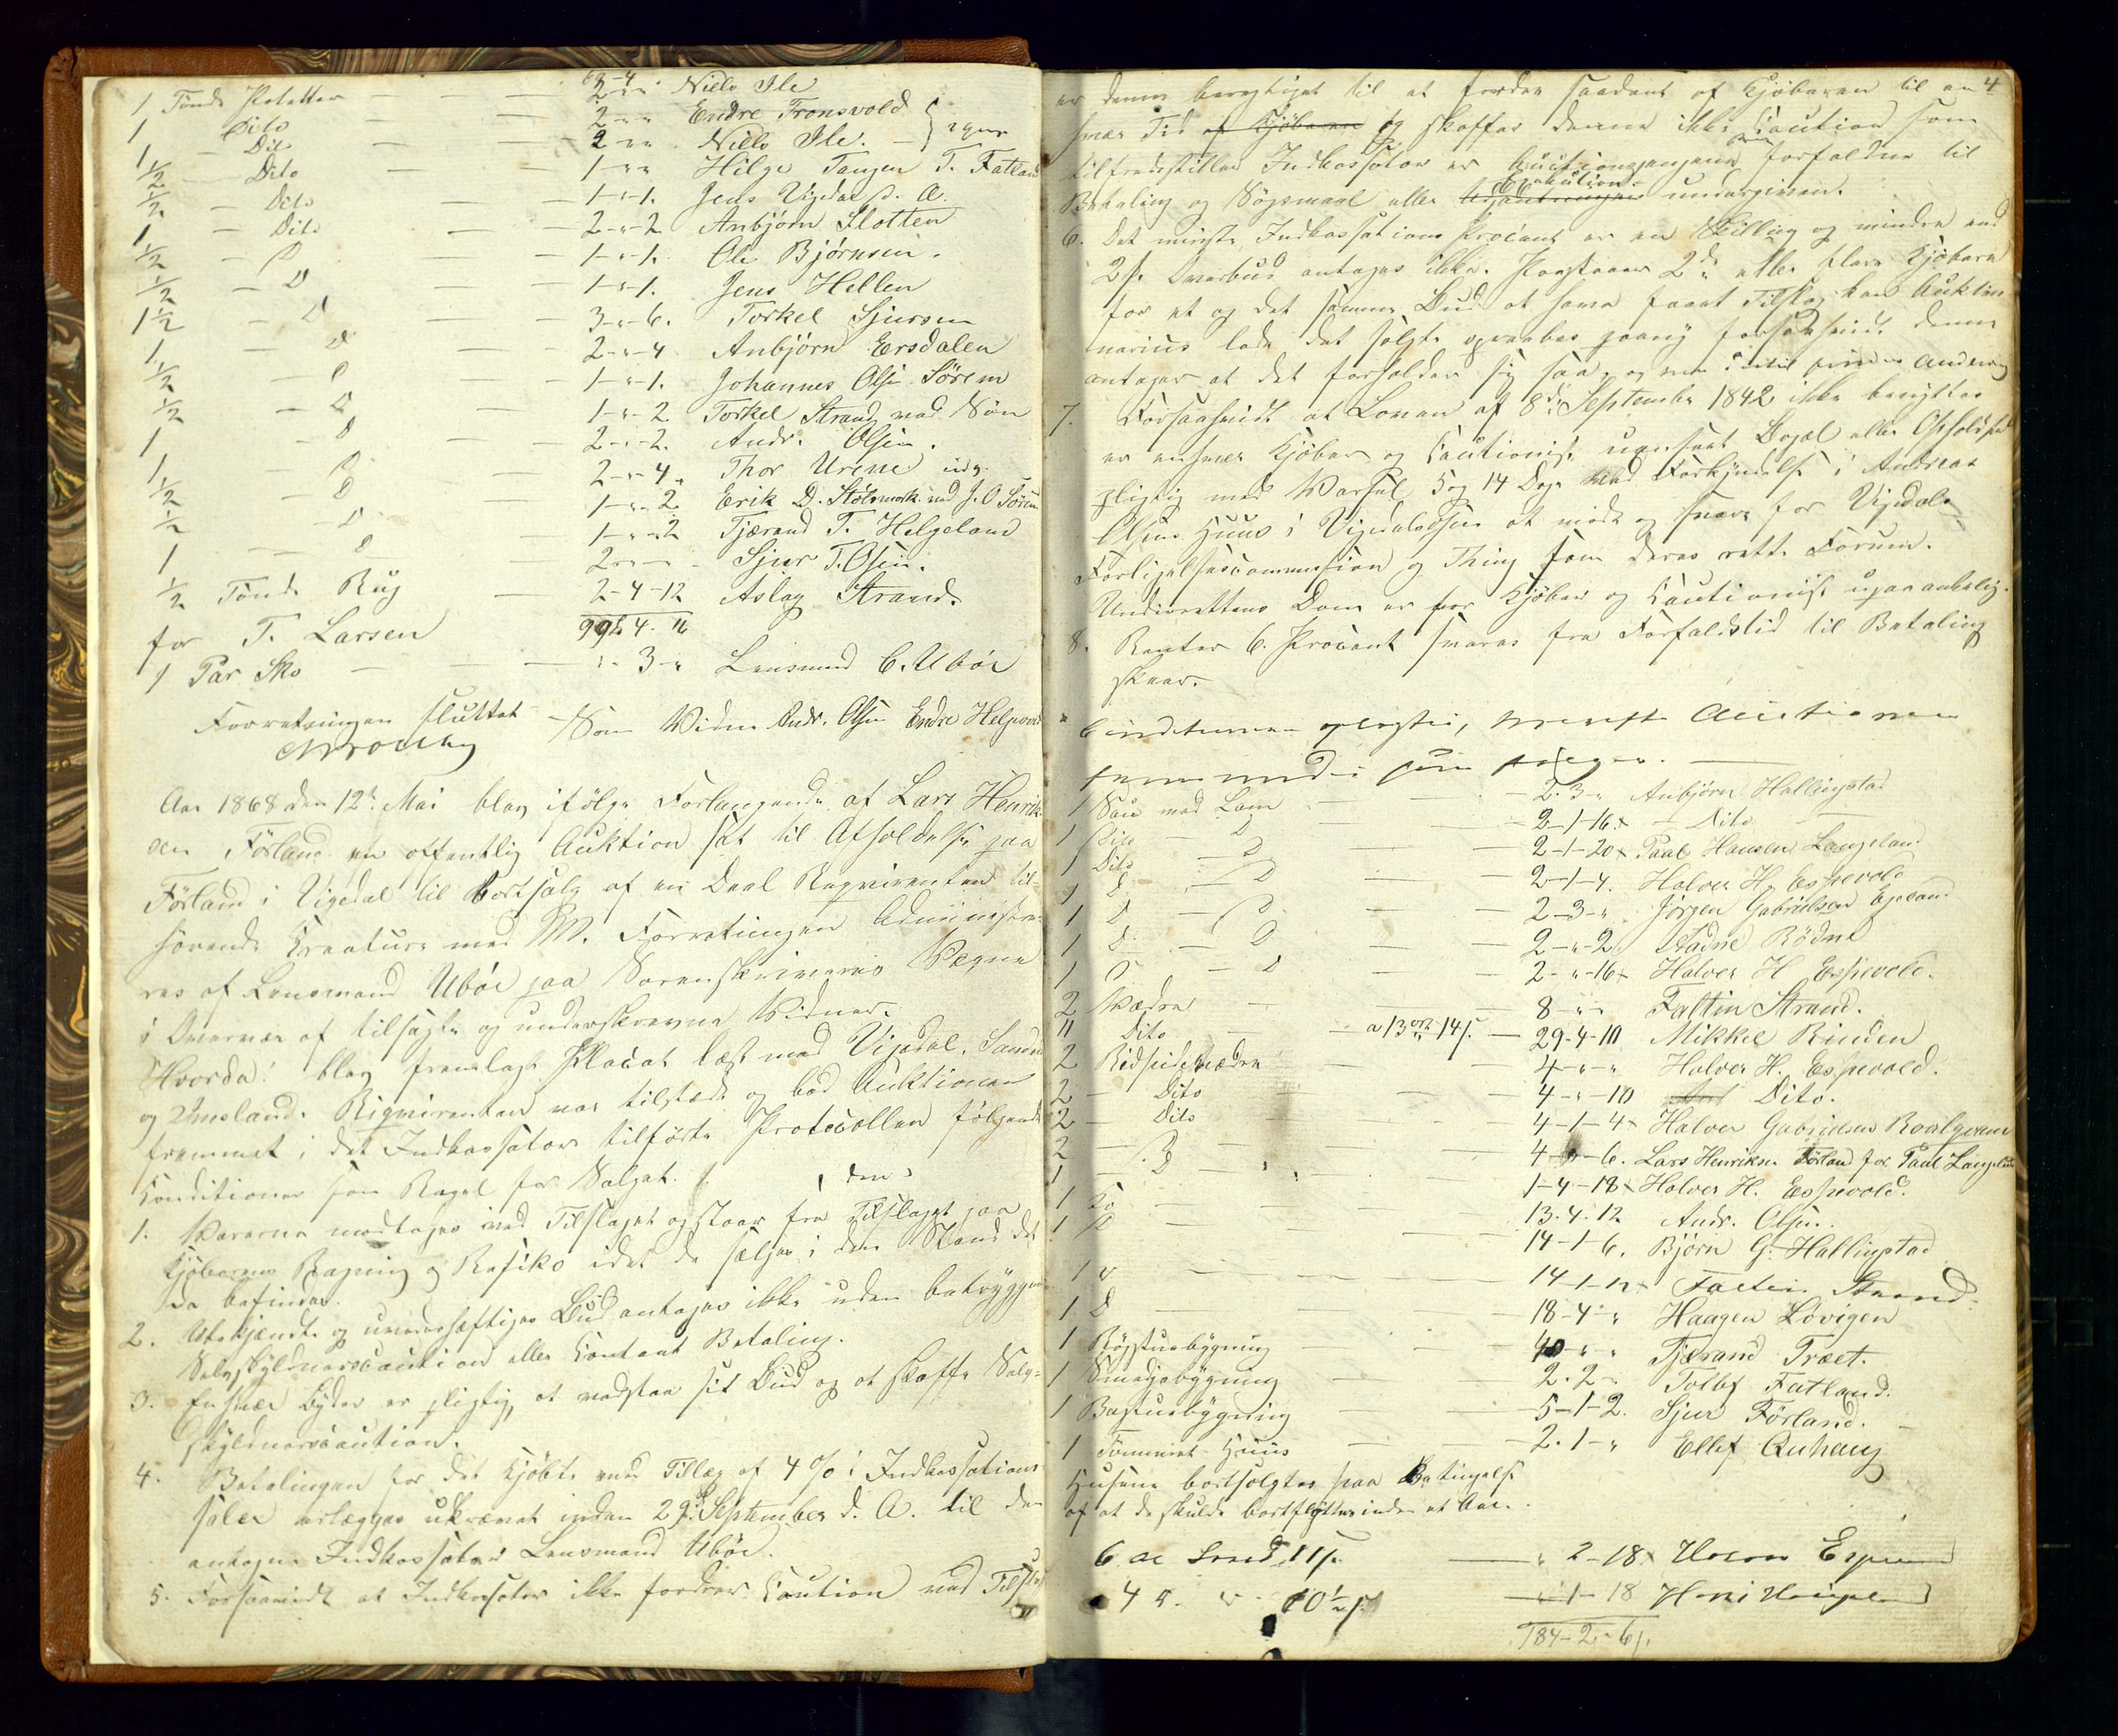 1 Tønde Poteter — — 2 " " Niels Ile
1 Dito — — 2 " " Endre Fronsvold
1 — Dito — 2 " " Niels Ile.
1/2 — Dito — 1 - " " Helge Tangen T. Fatland
1/2 — Dito — 1 - " - 1. Jens Vigdal s. A.
1 — Dito — 2 - " - 2 Anbjørn Slotten
1/2 — D — 1 - " - 1. Ole Bjørnsen.
1/2 — D — 1 - " - 1. Jens Hellen
1 1/2 — D — 3 - " - 6. Torkel Sjursen
1 — D — 2 - " - 4 Anbjørn Ersdalen
1/2 — D — 1 - " - 1. Johannes Olsen Sørem
1/2 — D — 1 - " - 2 Torkel Strand ved Søn
1 — D — 2 - " - 2. Andr. Olsen.
1 — D — 2 - " - 4. Thor Urene
1/2 — D — 1 - " - 2 Erik D. Stølsmark ved J. O. Sørem
1/2 — D — 1 - " - 2 Tjærand T. Helgeland
1 — D — 2 - " - Sjur T. Olsen.
1/2 Tønde Rug — 2 - 4 - 12 Aslag Strand.
for T. Larsen
1 Par Sko — " - 3 - " Lensmand C. Ubøe
Forretningen sluttet
Som Vidner Andr. Olsen Endre Helgevold
Aar 1868 den 12te Mai blev ifølge Forlangende af Lars Henrik-
sen Førland en offentlig Auktion sat til Afholdelse paa
Førland i Vigedal til Bortsalg af en Deel Reqvirenten til-
hørende Kreature med M. Forretningen administre-
res af Lensmand Ubøe paa Sorenskriverens Vegne
i Overvær af tilsagte og underskrevne Vidner.
Hvorda: blev fremlagt Placat læst ved Vigedal, Sandeid
og Imsland. Reqvirenten var tilstede og bød Auktionen
fremmet i det Indkassator tilførte Protocollen følgende
Conditioner som Regel for Salget.
1. Varerne modtages ved Tilslaget og staar fra Tilslaget paa
Kjøberens Regning og Resiko idet de sælges i den Stand de
da befindes.
2. Ubekjendte og uvederheftiges Bud antages ikke uden betryggende
Selvskyldnercaution eller Contant Betaling.
3. Enhver Byder er pligtig at vedstaa sit Bud og at skaffe Selv-
skyldnercaution.
4. Betalingen for det Kjøbte med Tillæg af 4 % i Indkassations
salær erlægges ukrævet inden 29de September d. A. til den
antagne Indkassator Lensmand Ubøe.
5. Forsaavidt at Indkassator ikke fordrer Caution ved Tilslag
4
er denne berettiget til at fordre saadant af Kjøberen til en
hver Tid af Kjøberen og skaffer denne ikke Caution som
tilfredsstiller Indkassator er Auctionspengene forfaldne til
Betaling og Søgsmaal eller Execution undergiven.
6. Det mindste Indkassations Procent er en Skilling og mindre end
2 s. Overbud antages ikke. Paastaaer 2de eller flere Kjøbere
for et og det samme Bud at have faaet Tilslag kan Auktio-
narius lade det solgte opraabes paany forsaavidt denne
antager at det forholder sig saa
7. Forsaavidt at Loven af 8de September 1842 ikke benyttes
er enhver Kjøber og Cautionist uanseet Bopæl eller Opholdsted
pligtig med Varsel 5 og 14 Dage ved Forkyndelse i Andreas
Olsens Huus i Vigedalsøren at møde og svare for Vigedals
Forligelsescommission og Thing som deres rette Forum.
Underrettens Dom er for Kjøber og Cautionist upaaankelig.
8. Renter 6. Procent svares fra Forfaldstid til Betaling
skeer.
Conditionerne oplæstes, hvorefter Auctionen
1 Sau med Lam — 2. 3 - " Anbjørn Hallingstad
1 Dito — D — 2 - 1 - 16. x — Dito
1 Dito — D — 2 - 1 - 20 x Paal Hansen Langeland
1 D — D — 2 - 1 - 4. Halver H. Espevold
1 D — D — 2 - 3 - " Jørgen Gabrielsen
1 D. — D — 2 - " - 2 Aadne Rødne
1 D — D — 2 - " - 16 x Halver H Espevold.
2 Vædre — 8 - " - " Faltin Strand.
11 Dito — a 13 ort 14 s. — 29 - 4 - 10 Mikkel Rinden
2 — 4 - " - " Halver H. Espevold.
2 — Dito — 4 - " - 10 Dito.
2 — Dito — 4 - 1 - 4 x Halver Gabrielsen Roalqvam
2 — D — 4 - " - 6. Lars Henriksen Førland for Paul Langeland
1 — D — 1 - 4 - 18 x Halver H. Espevold.
1 Ko — 13. 4. 12 Andr. Olsen.
1 D — 14 - 1 - 6. Bjørn G. Hallingstad
1 — Faltin Strand.
1 D — 18 - 4 - " Haagen Løvigen
1 Røgstuebygning — 40 - " - " Tjærand Træet.
1 Smedjebygning — 2. 2 - Tollef Fatland.
1 Badstuebygning — 5 - 1 - 2. Sjur Førland.
1 Tømmret Huus — 2. 1 - " Ellef Auhaug
Husene bortsolgtes paa Betingelse
af at de skulde bortflyttes inden et Aar.
6 — 11 s. — " 2 - 18 x
4 — 10 1/2 s. — " - 1 - 18
184 - 2 - 6 s.